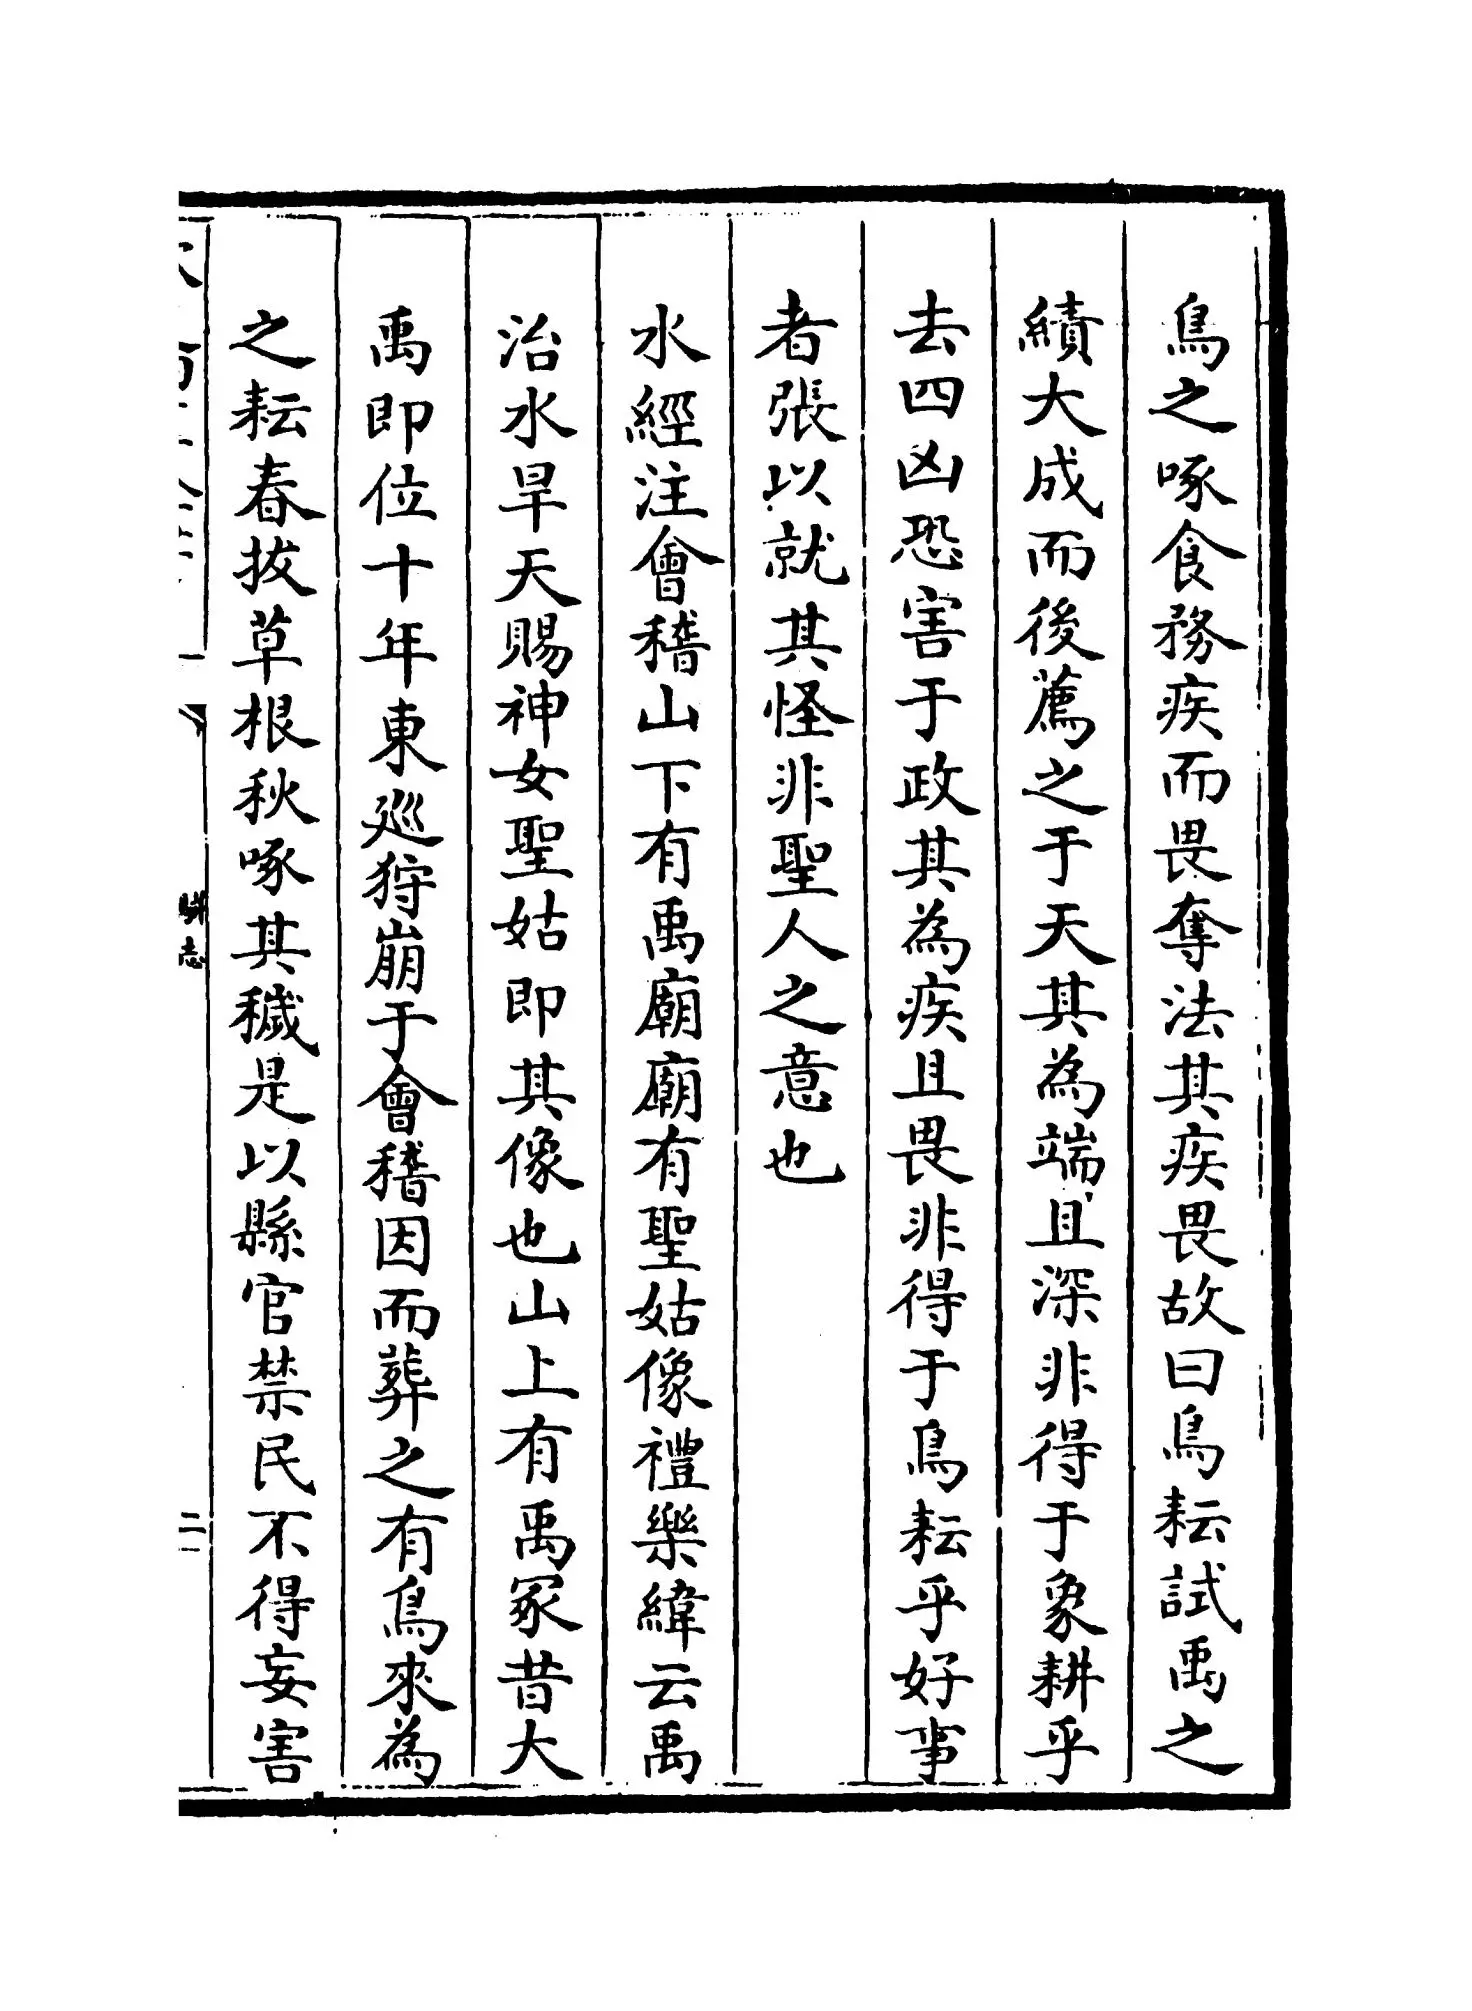 鳥之啄食務疾而畏奪法其疾畏故曰鳥耘試禹之
績大成而後薦之于天其為端且深非得于象耕乎
去四凶恐害于政其為疾且畏非得于鳥耘乎好事
者張以就其怪非聖人之意也
水經注會稽山下有禹廟廟有聖姑像禮樂緯云禹
治水旱天賜神女聖姑即其像也山上有禹冢昔大
禹即位十年東廵狩崩于會稽因而葬之有鳥來為
之耘春拔草根秋啄其穢是以縣官禁民不得妄害